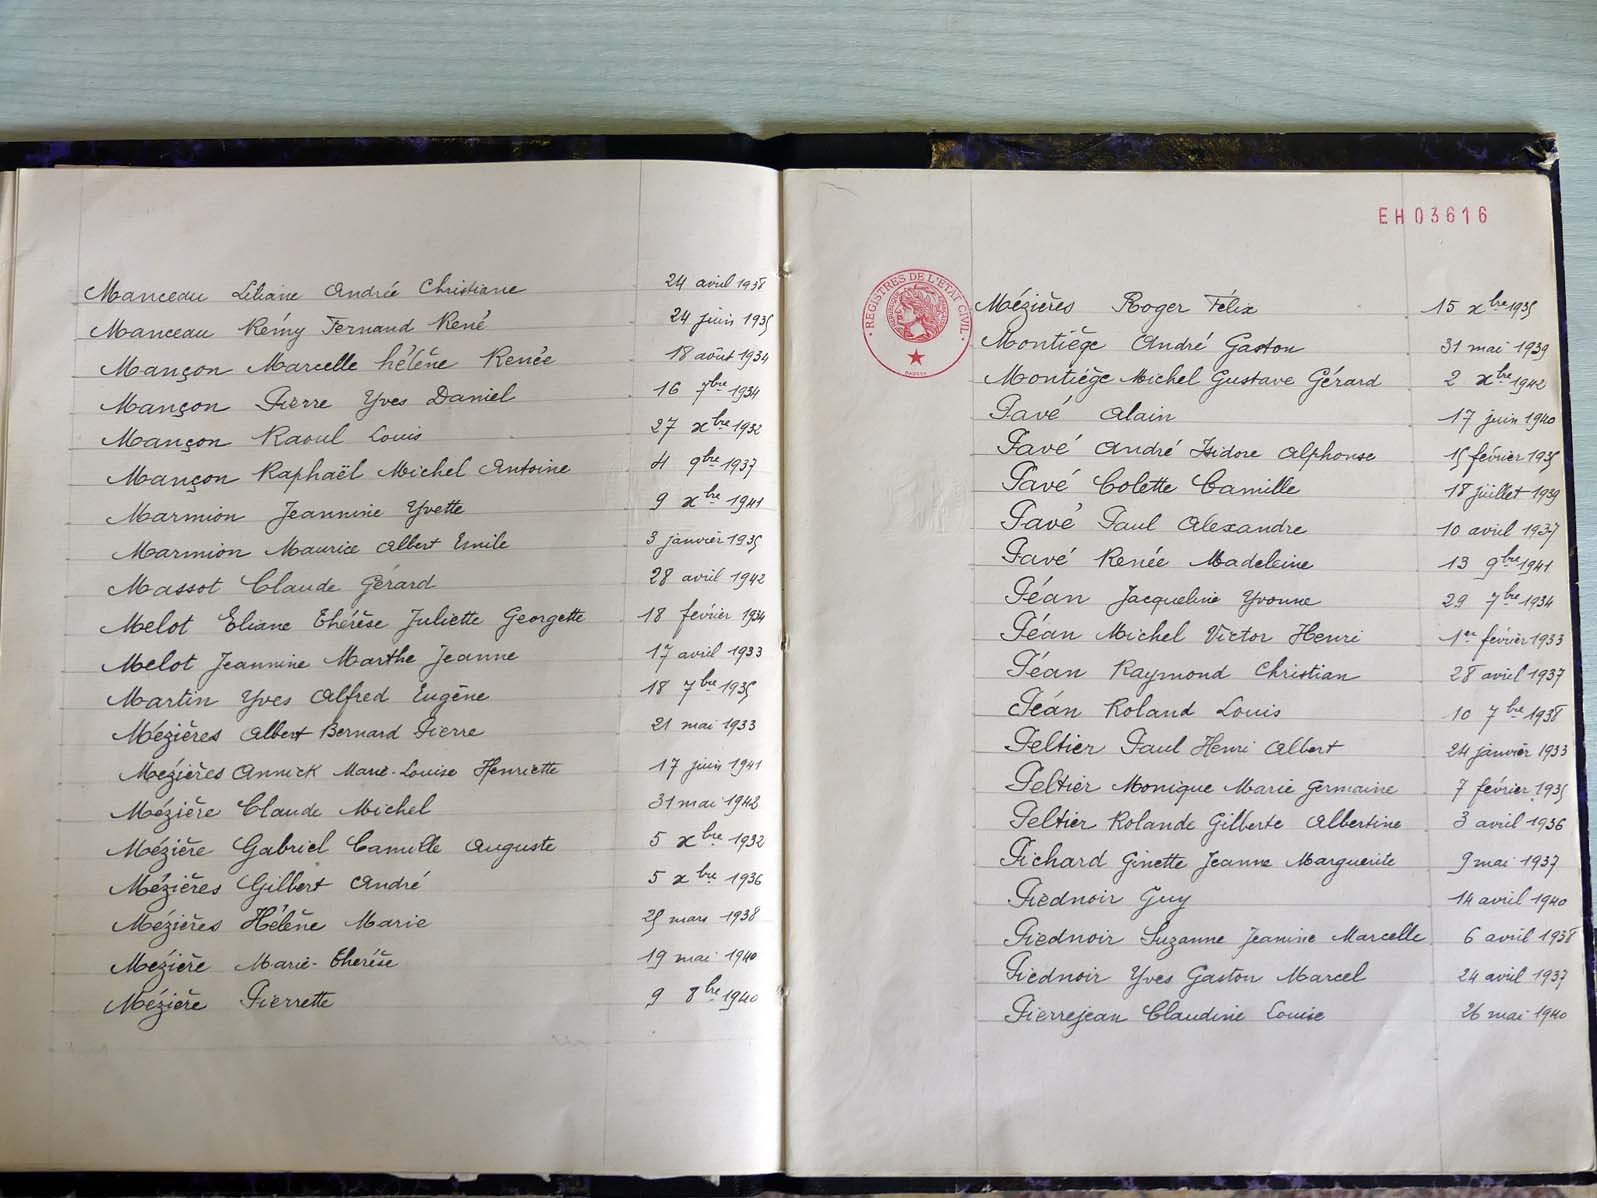 Manceau Liliane Andrée Christiane 24 avril 1938
Manceau Rémy Fernand René 24 juin 1935
Mançon Marcelle hélène Renée 18 août 1934
Mançon Pierre Yves Daniel 16 7bre 1934
Mançon Raoul Louis 27 xbre 1932
Mançon Raphaël Michel Antoine 4 9bre 1937
Marmion Jeannine Yvette 9 xbre 1941
Marmion Maurice Albert Emile 3 janvier 1935
Massot Claude Gérard 28 avril 1942
Melot Eliane Thérèse Juliette Georgette 18 février 1934
Melot Jeannine Marthe Jeanne 17 avril 1933
Martin Yves Alfred Eugène 18 7bre 1935
Mézières Albert Bernard Pierre 21 mai 1933
Mézières Annick Marie-Louise Henriette 17 juin 1941
Mézière Claude Michel 31 mai 1942
Mézière Gabriel Camille Auguste 5 xbre 1932
Mézières Gilbert André 5 xbre 1936
Mézières Hélène Marie 25 mars 1938
Mézière Marie-Thérèse 19 mai 1940
Mézière Pierrette 9 8bre 1940
EH03616
REGISTRES DE L'ETAT CIVIL
Mézières Roger Félix 15 xbre 1935
Montiège André Gaston 31 mai 1939
Montiège Michel Gustave Gérard 2 xbre 1942
Pavé Alain 17 juin 1940
Pavé André Isidore Alphonse 15 février 1935
Pavé Colette Camille 18 juillet 1939
Pavé Paul Alexandre 10 avril 1937
Pavé Renée Madeleine 13 9bre 1941
Péan Jacqueline Yvonne 29 7bre 1934
Péan Michel Victor Henri 1er février 1933
Péan Raymond Christian 28 avril 1937
Péan Roland Louis 10 7bre 1938
Peltier Paul Henri Albert 24 janvier 1933
Peltier Monique Marie Germaine 7 février 1935
Peltier Rolande Gilberte Albertine 3 avril 1936
Pichard Ginette Jeanne Marguerite 9 mai 1937
Piednoir Guy 14 avril 1940
Piednoir Suzanne Jeanine Marcelle 6 avril 1938
Piednoir Yves Gaston Marcel 24 avril 1937
Pierrejean Claudine Louise 26 mai 1940